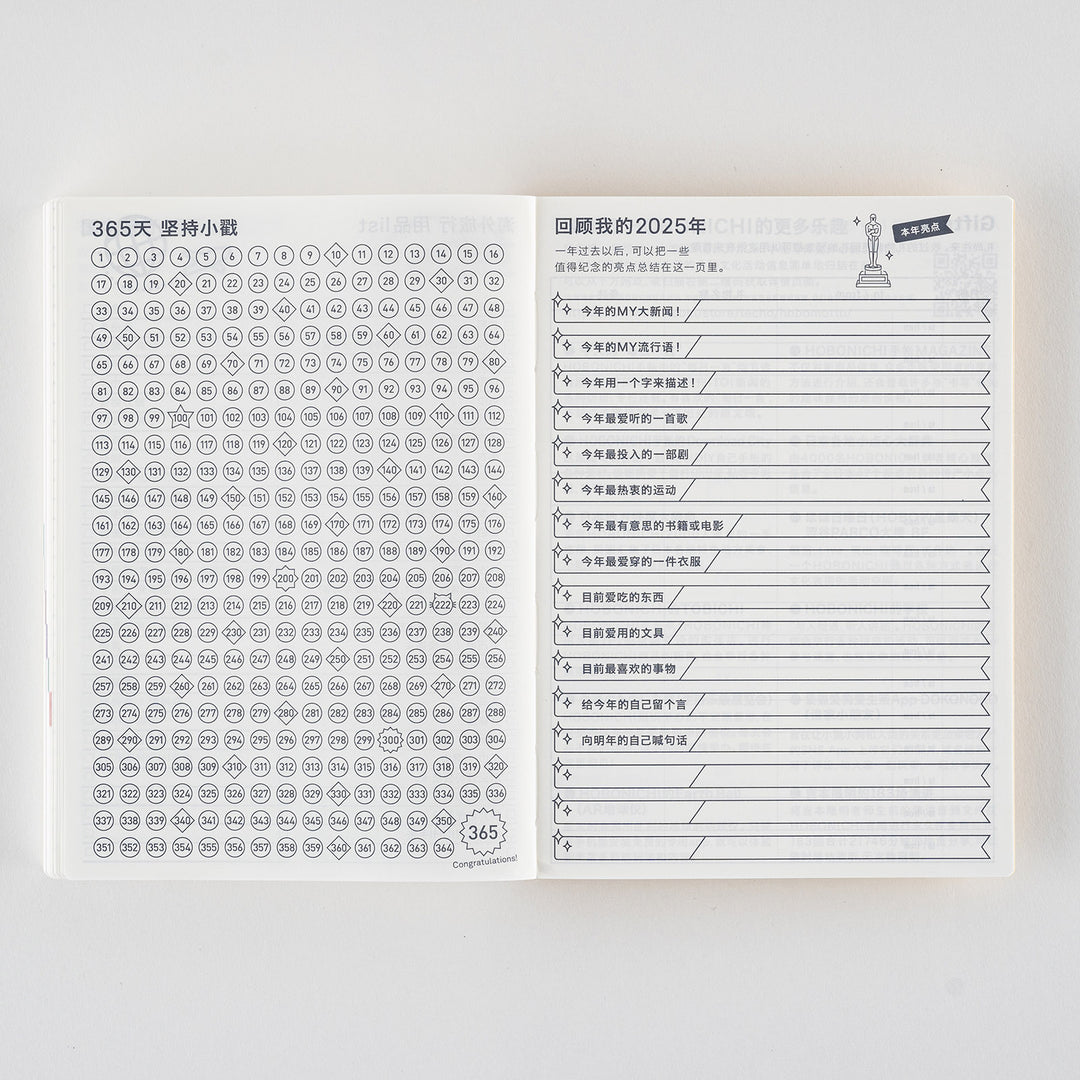 365天 坚持小戳
1 2 3 4 5 6 7 8 9 10 11 12 13 14 15 16
17 18 19 20 21 22 23 24 25 26 27 28 29 30 31 32
33 34 35 36 37 38 39 40 41 42 43 44 45 46 47 48
49 50 51 52 53 54 55 56 57 58 59 60 61 62 63 64
65 66 67 68 69 70 71 72 73 74 75 76 77 78 79 80
81 82 83 84 85 86 87 88 89 90 91 92 93 94 95 96
97 98 99 100 101 102 103 104 105 106 107 108 109 110 111 112
113 114 115 116 117 118 119 120 121 122 123 124 125 126 127 128
129 130 131 132 133 134 135 136 137 138 139 140 141 142 143 144
145 146 147 148 149 150 151 152 153 154 155 156 157 158 159 160
161 162 163 164 165 166 167 168 169 170 171 172 173 174 175 176
177 178 179 180 181 182 183 184 185 186 187 188 189 190 191 192
193 194 195 196 197 198 199 200 201 202 203 204 205 206 207 208
209 210 211 212 213 214 215 216 217 218 219 220 221 222 223 224
225 226 227 228 229 230 231 232 233 234 235 236 237 238 239 240
241 242 243 244 245 246 247 248 249 250 251 252 253 254 255 256
257 258 259 260 261 262 263 264 265 266 267 268 269 270 271 272
273 274 275 276 277 278 279 280 281 282 283 284 285 286 287 288
289 290 291 292 293 294 295 296 297 298 299 300 301 302 303 304
305 306 307 308 309 310 311 312 313 314 315 316 317 318 319 320
321 322 323 324 325 326 327 328 329 330 331 332 333 334 335 336
337 338 339 340 341 342 343 344 345 346 347 348 349 350 365
351 352 353 354 355 356 357 358 359 360 361 362 363 364
Congratulations!
回顾我的2025年
本年亮点
一年过去以后，可以把一些
值得纪念的亮点总结在这一页里。
今年的MY大新闻！
今年的MY流行语！
今年用一个字来描述！
今年最爱听的一首歌
今年最投入的一部剧
今年最热衷的运动
今年最有意思的书籍或电影
今年最爱穿的一件衣服
目前爱吃的东西
目前爱用的文具
目前最喜欢的事物
给今年的自己留个言
向明年的自己喊句话